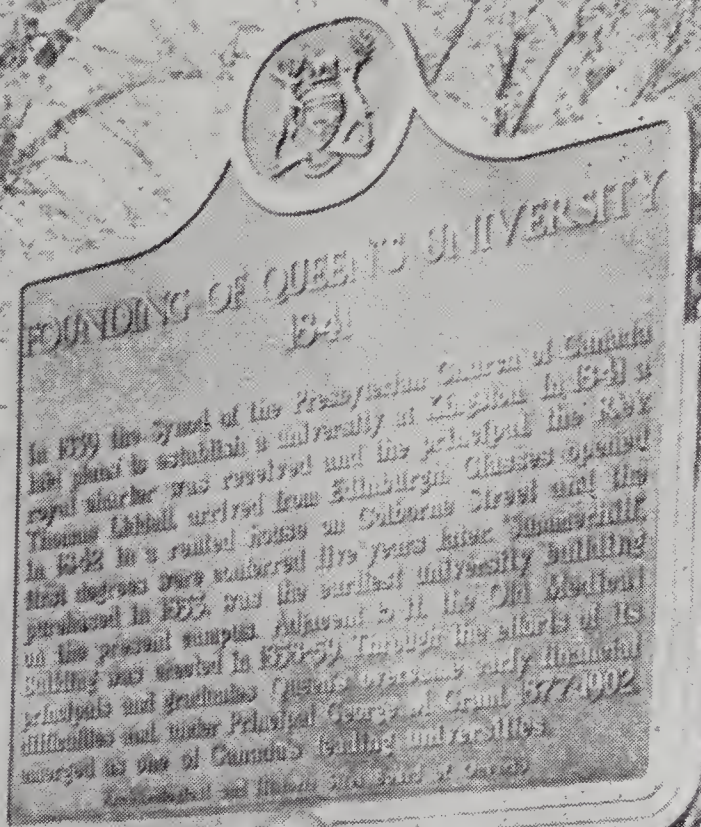 FOUNDING OF QUEEN'S UNIVERSITY
1841
In 1839 the Synod of the Presbyterian Church of Canada
laid plans to establish a university at Kingston. In 1841 a
royal charter was received and the principal, the Rev.
Thomas Liddell, arrived from Edinburgh. Classes opened
in 1842 in a rented house on Colborne Street and the
first degrees were conferred five years later. Summerhill,
purchased in 1853, was the earliest university building
on the present campus. Adjacent to it, the Old Medical
Building was erected in 1858-59. Through the efforts of its
principals and graduates Queen's overcame early financial
difficulties and, under Principal George M. Grant, 1877-1902,
emerged as one of Canada's leading universities.
Archaeological and Historic Sites Board of Ontario